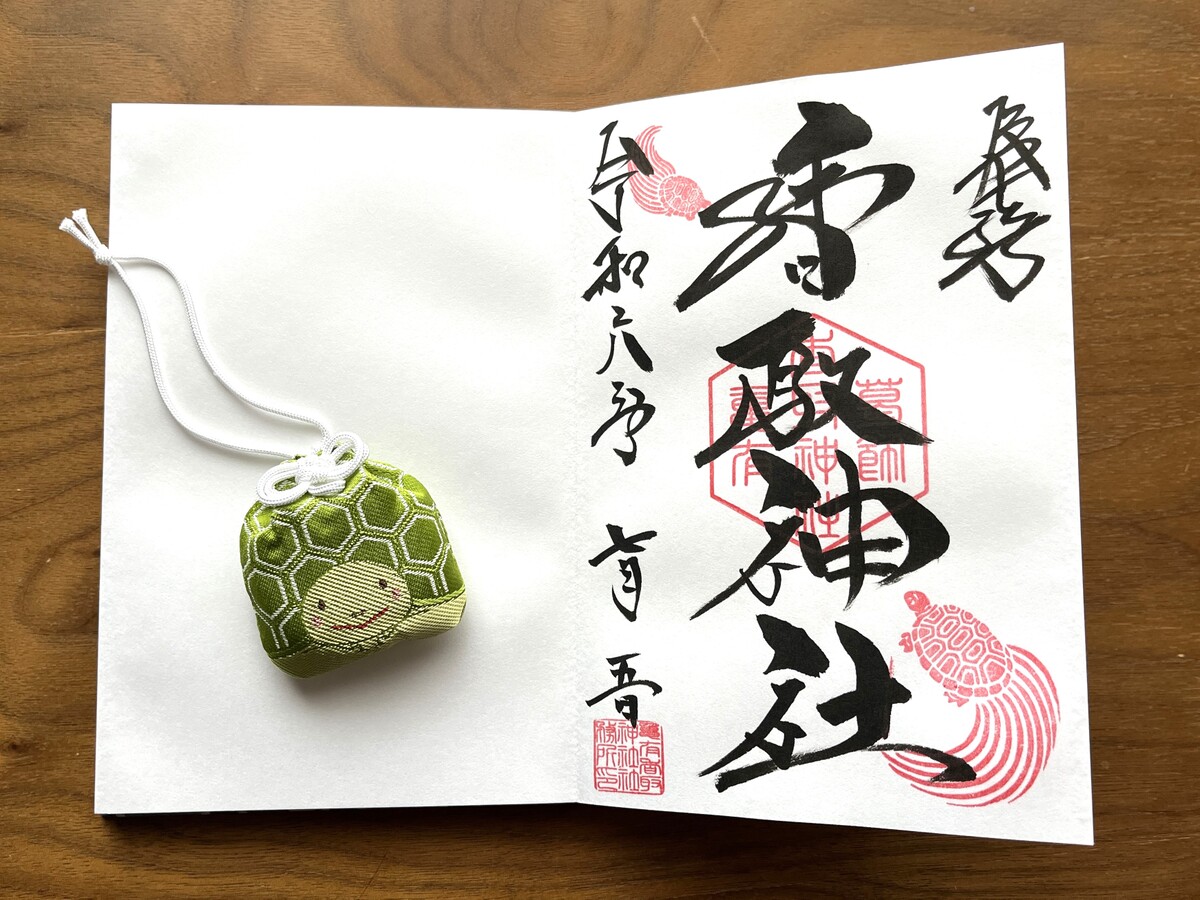 香取神社
葛飾
香取神社
亀有
令和六年 七月 五日
亀有香取
神社社
務所印